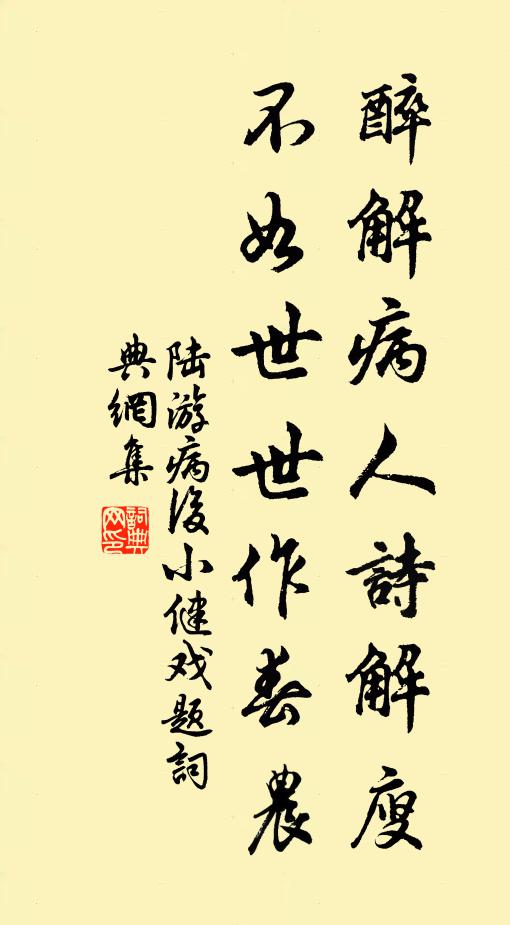 醉解病人詩解瘦
不如世世作春農
陆游病後小健戏题詞
典網集
詞典
网印